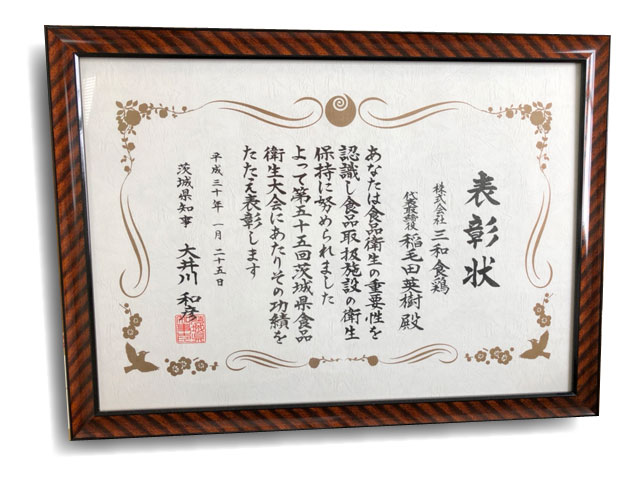 表彰状
株式会社 三和食鶏
代表取締役 稲毛田英樹 殿
あなたは食品衛生の重要性を
認識し食品取扱施設の衛生
保持に努められました
よって第五十五回茨城県食品
衛生大会にあたりその功績を
たたえ表彰します
平成三十年一月二十五日
茨城県知事 大井川 和彦